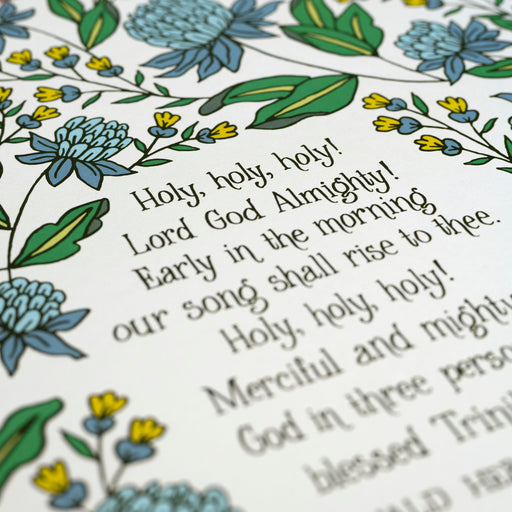 Holy, holy, holy!
Lord God Almighty!
Early in the morning
our song shall rise to thee.
Holy, holy, holy!
Merciful and mighty
God in three perso
blessed Trini
ALD HE